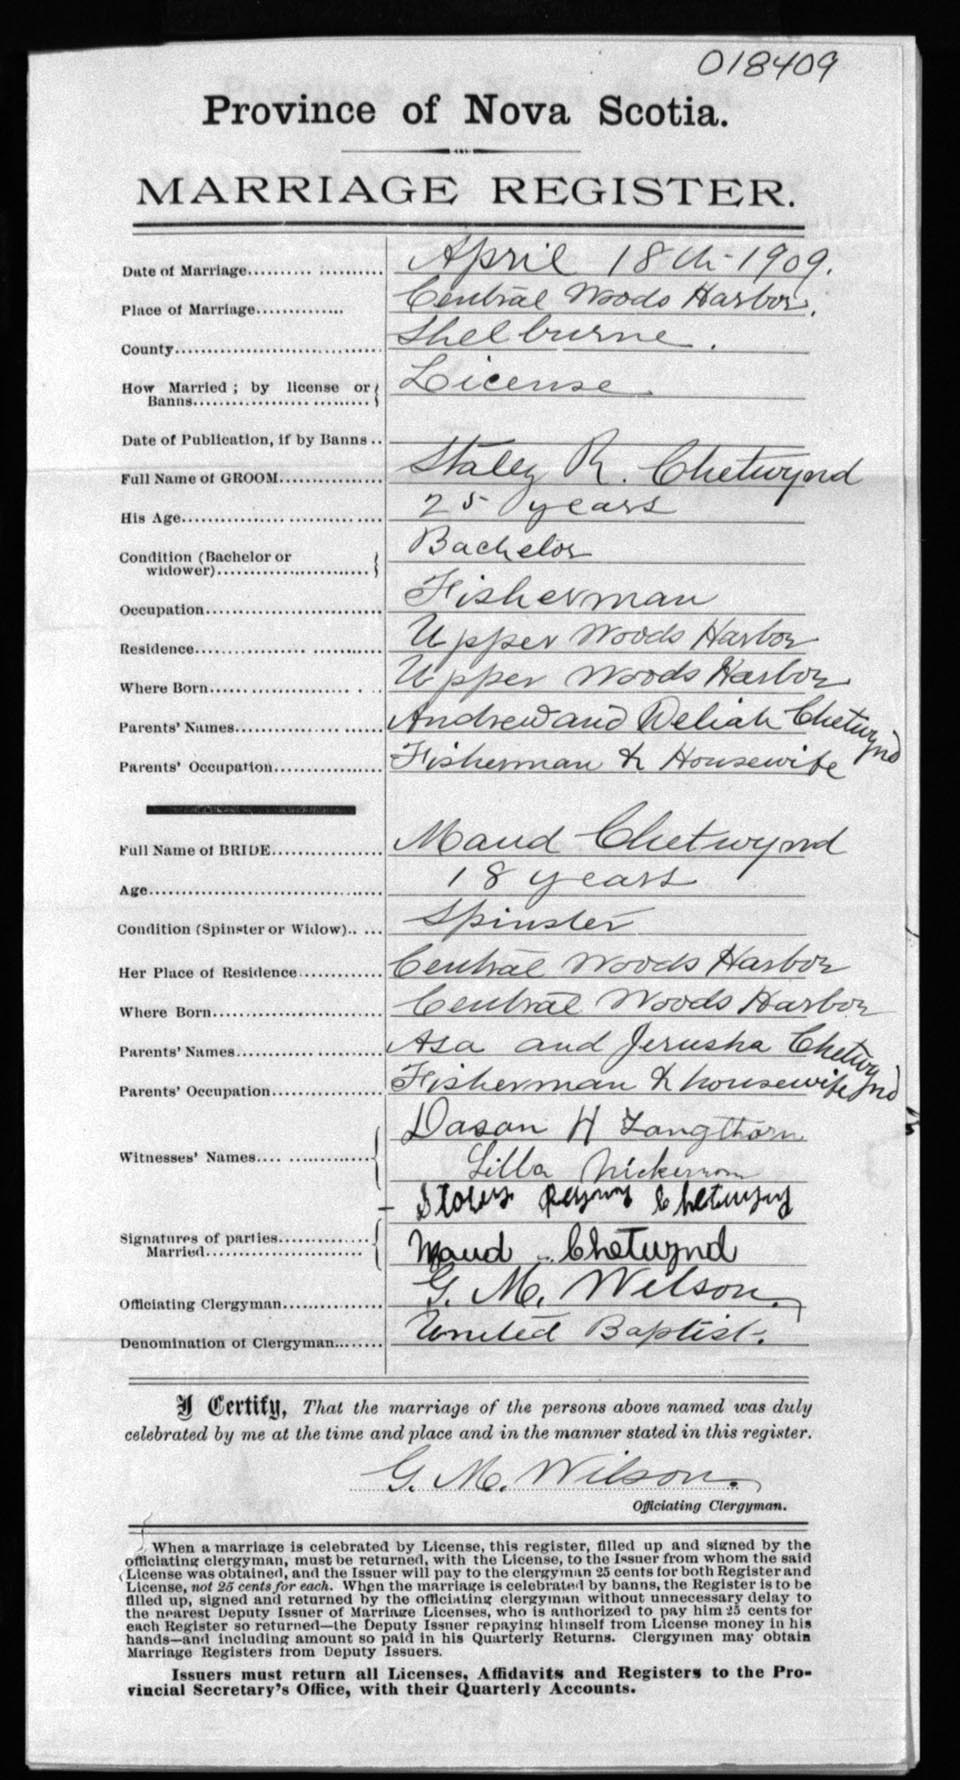 018409
Province of Nova Scotia.
MARRIAGE REGISTER.
Date of Marriage.......... April 18th - 1909.
Place of Marriage.............. Central Woods Harbor.
County.............................. Shelburne.
How Married; by license or License
Banns..............................
Date of Publication, if by Banns ..
Full Name of GROOM................ Staley R. Chetwynd
His Age.............................. 25 years
Condition (Bachelor or Bachelor
widower)..........................
Occupation.......................... Fisherman
Residence........................... Upper Woods Harbor
Where Born.......................... Upper Woods Harbor
Parents' Names...................... Andrew and Deliah Chetwynd
Parents' Occupation................. Fisherman & Housewife
Full Name of BRIDE................ Maud Chetwynd
Age................................. 18 years
Condition (Spinster or Widow)..... Spinster
Her Place of Residence............. Central Woods Harbor
Where Born.......................... Central Woods Harbor
Parents' Names...................... Asa and Jerusha Chetwynd
Parents' Occupation................. Fisherman & housewife
Dason H Langthorn
Witnesses' Names.................... Lilla Nickerson
Chetwynd
Signatures of parties............... Maud Chetwynd
Married.......................
Officiating Clergyman............... G. M. Wilson.
Denomination of Clergyman........ United Baptist.
I Certify, That the marriage of the persons above named was duly
celebrated by me at the time and place and in the manner stated in this register.
G. M. Wilson.
Officiating Clergyman.
When a marriage is celebrated by License, this register, filled up and signed by the
officiating clergyman, must be returned, with the License, to the Issuer from whom the said
License was obtained, and the Issuer will pay to the clergyman 25 cents for both Register and
License, not 25 cents for each. When the marriage is celebrated by banns, the Register is to be
filled up, signed and returned by the officiating clergyman without unnecessary delay to
the nearest Deputy Issuer of Marriage Licenses, who is authorized to pay him 25 cents for
each Register so returned—the Deputy Issuer repaying himself from License money in his
hands—and including amount so paid in his Quarterly Returns. Clergymen may obtain
Marriage Registers from Deputy Issuers.
Issuers must return all Licenses, Affidavits and Registers to the Pro-
vincial Secretary's Office, with their Quarterly Accounts.